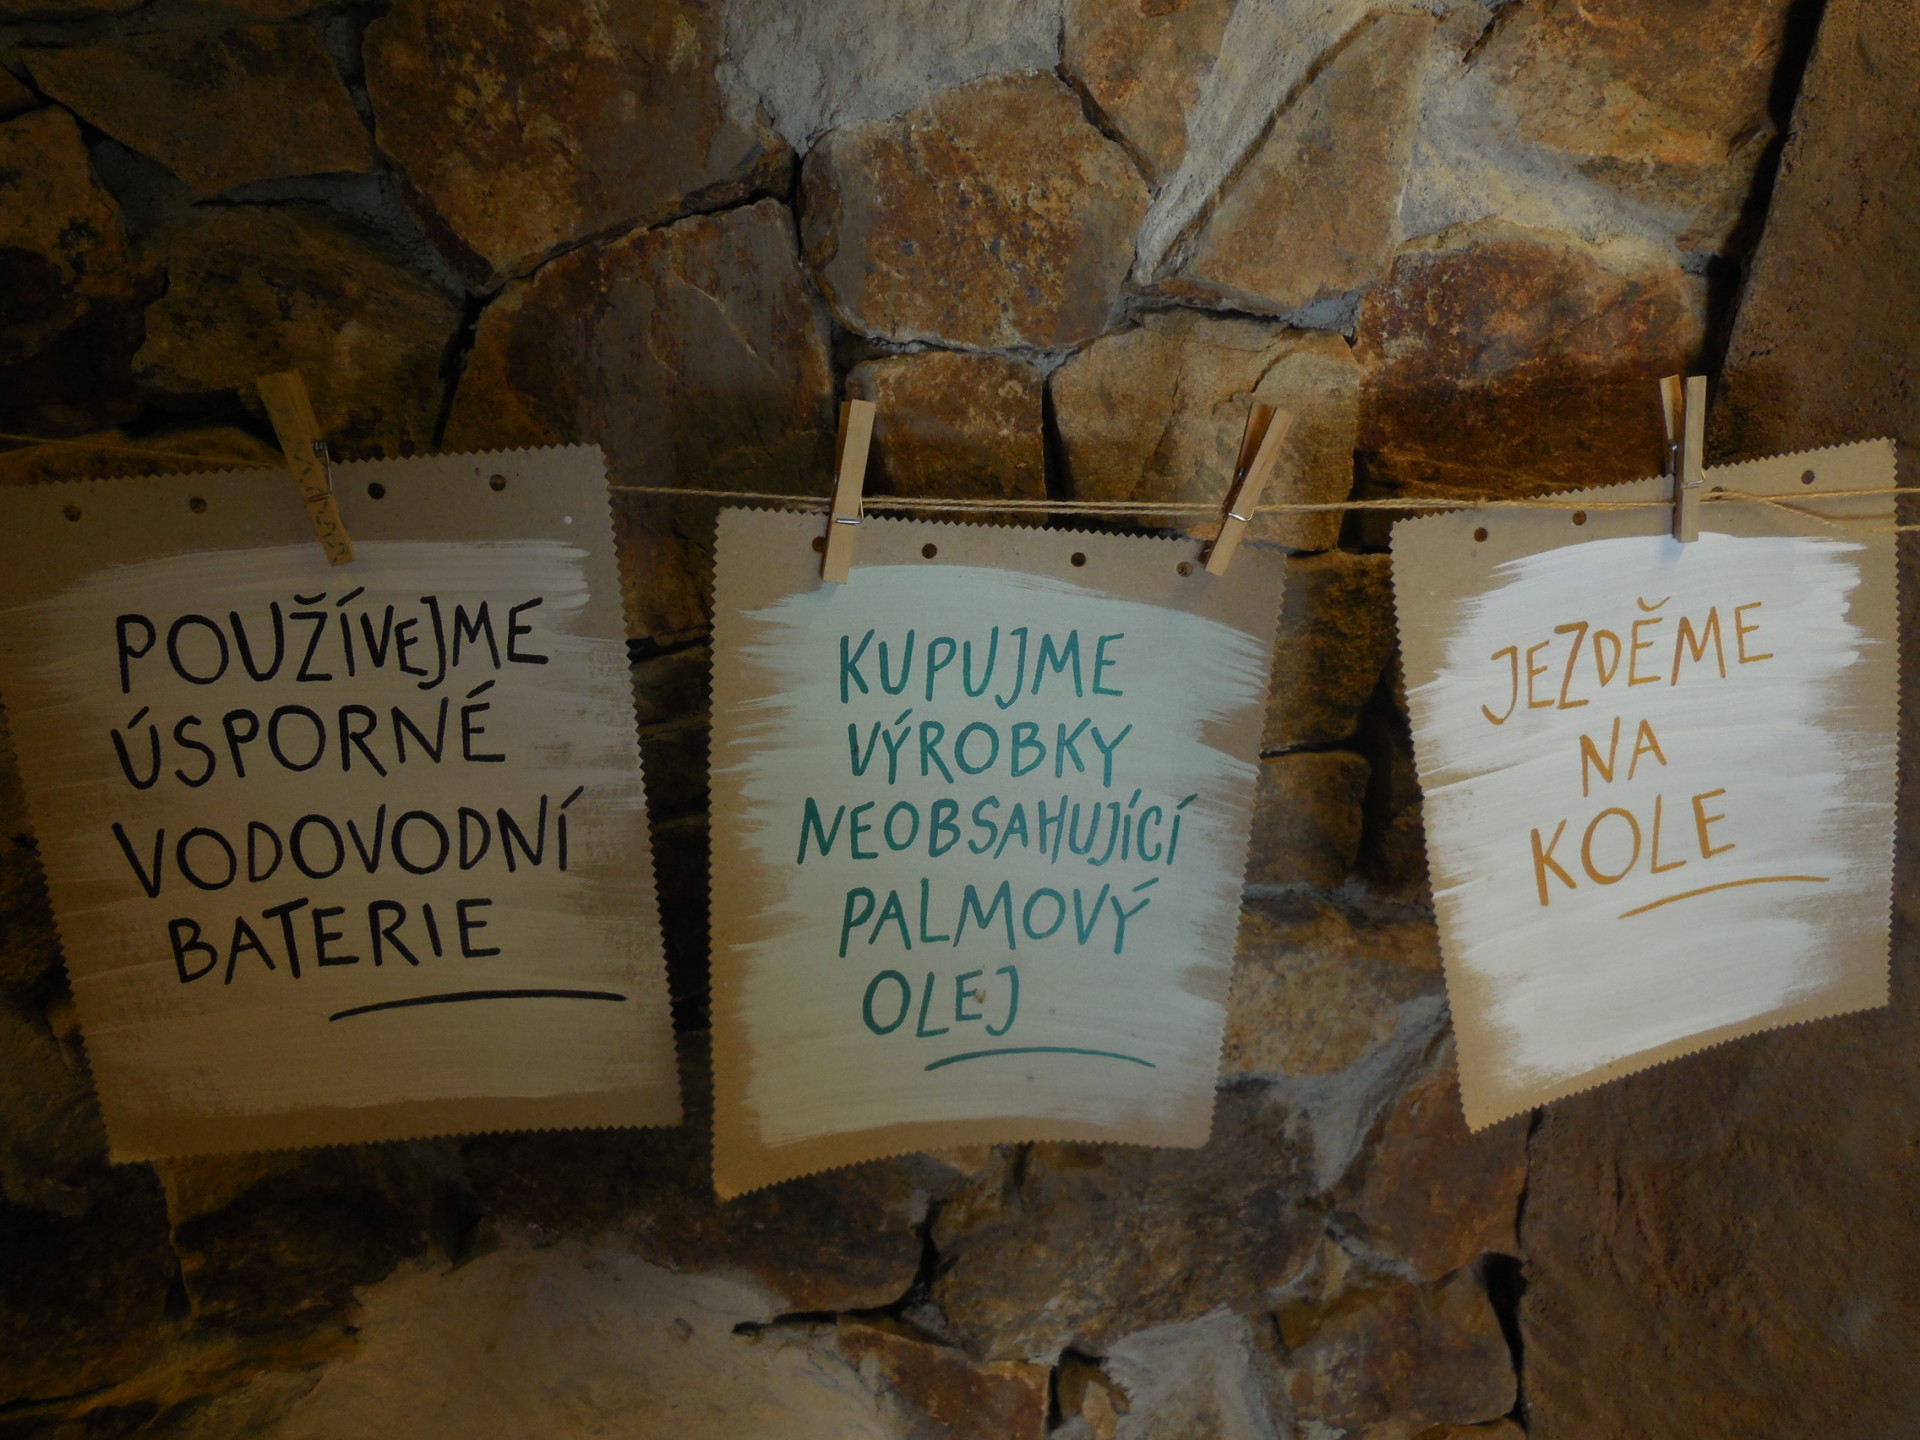 POUŽÍVEJME
ÚSPORNÉ
VODOVODNÍ
BATERIE
KUPUJME
VÝROBKY
NEOBSAHUJÍCÍ
PALMOVÝ
OLEJ
JEZDĚME
NA
KOLE